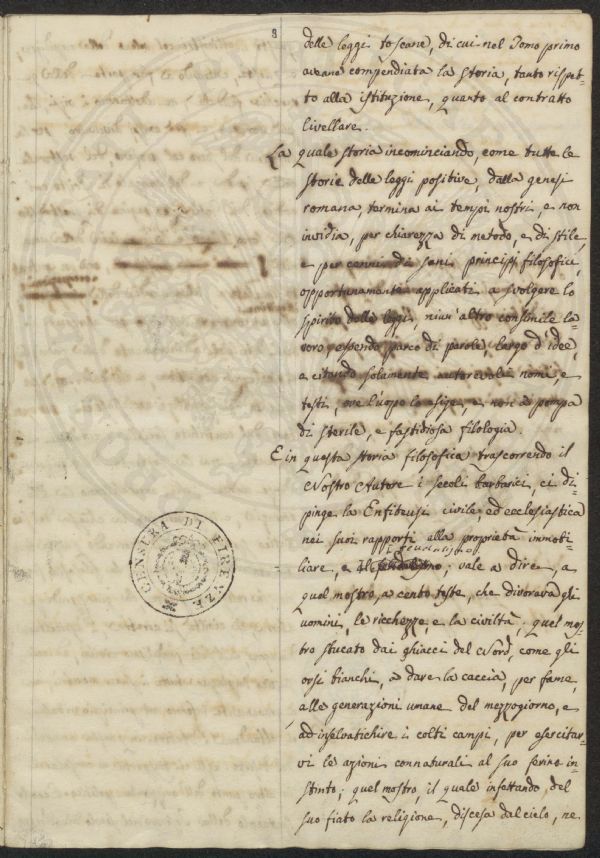 8
delle leggi toscane, di cui nel Tomo primo
aveano compendiata la storia, tanto rispet-
to alla istituzione, quanto al contratto
livellare.
La quale storia incominciando, come tutte le
storie delle leggi positive, dalla genesi
romana, termina ai tempi nostri, e non
invidia, per chiarezza di metodo, e di stile,
e per cenni di sani principj filosofici,
opportunamente applicati a svolgere lo
spirito delle leggi, niun' altro consimile la-
voro, essendo parco di parole, largo d'idee,
e citando solamente autorevoli nomi, e
testi, ove l'uopo lo esige, e non a pompa
di sterile, e fastidiosa filologia.
E in questa storia filosofica trascorrendo il
Nostro Autore i secoli barbarici, ci di-
pinge la Enfiteusi civile, ed ecclesiastica
nei suoi rapporti alla proprietà immobi-
liare, e al; vale a dire, a
quel mostro, a cento teste, che divorava gli
uomini, le ricchezze, e la civiltà; quel mos-
tro stucato dai ghiacci del Nord, come gli
orsi bianchi, a dare la caccia, per fame,
alle generazioni umane del mezzogiorno, e
ad inselvatichire i colti campi, per esercitar-
vi le azioni connaturali al suo ferino in-
stinto; quel mostro, il quale infettando, del
suo fiato la religione, discesa dal cielo, ne
CENSURA DI FIRENZE